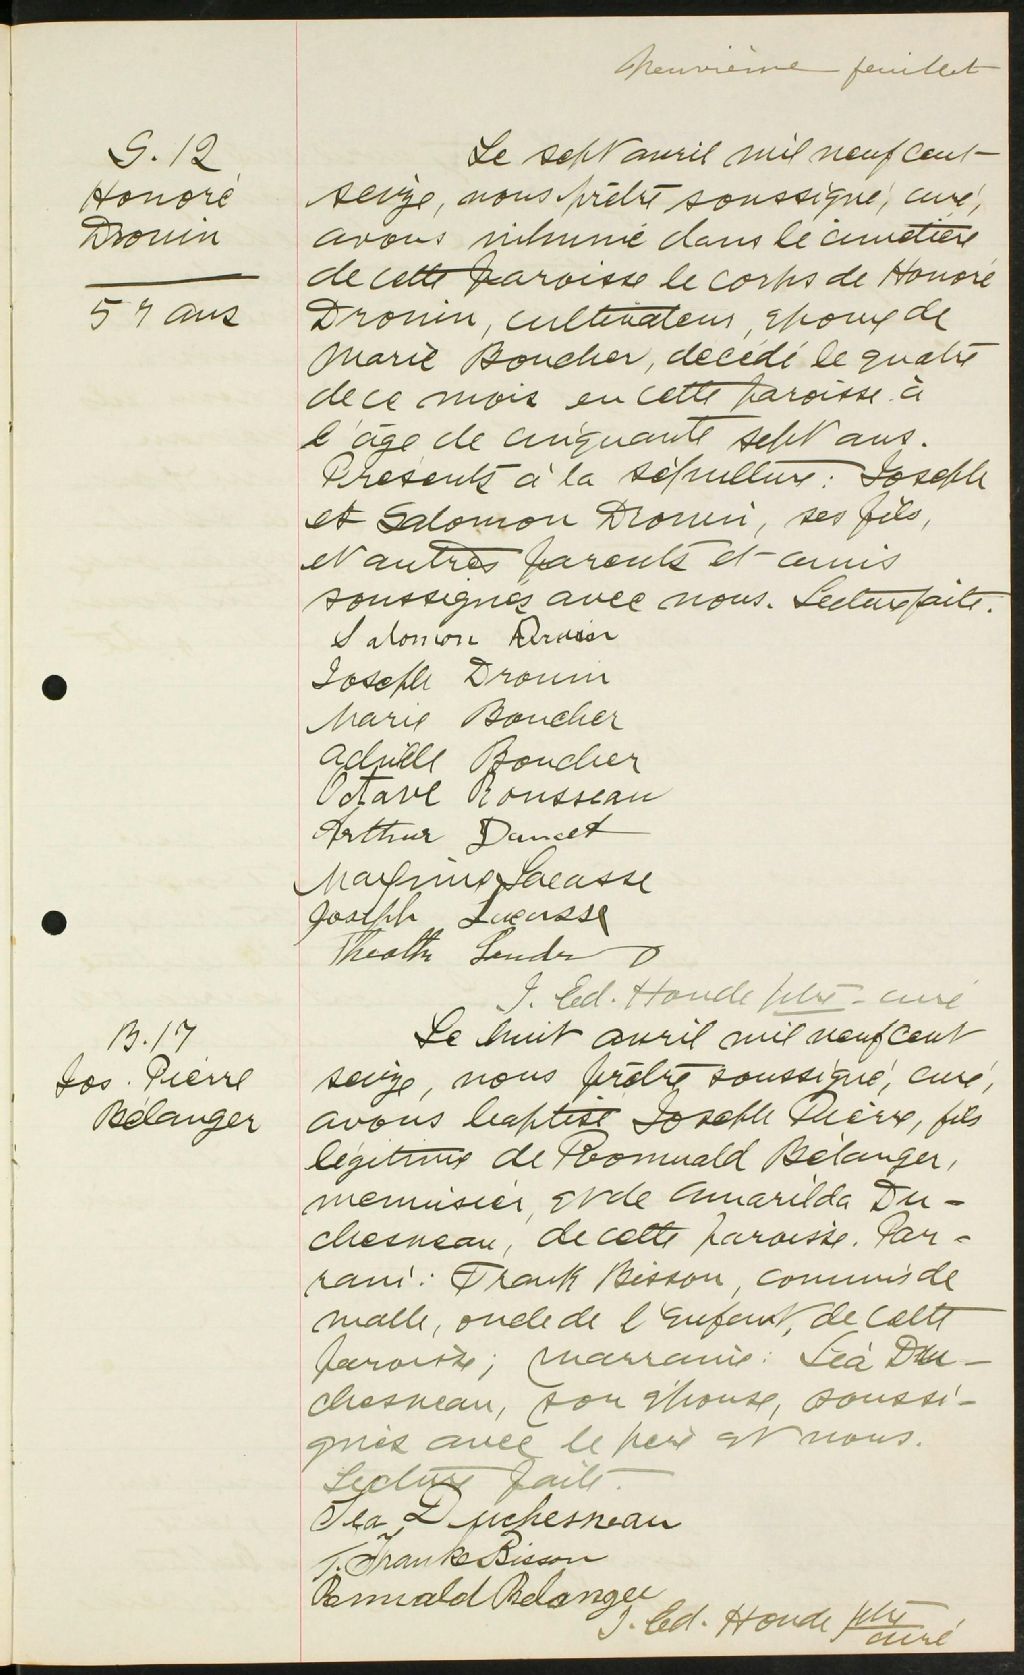 neuvième feuillet
S. 12
Honoré
Drouin
57 ans
Le sept avril mil neuf cent
seize, nous prêtre soussigné, curé,
avons inhumé dans le cimetière
de cette paroisse le corps de Honoré
Drouin, cultivateur, époux de
Marie Boucher, décédé le quatre
de ce mois en cette paroisse à
l'âge de cinquante sept ans.
Présents à la sépulture: Joseph
et Salomon Drouin, ses fils,
et autres parents et amis
soussignés avec nous. Lecture faite.
Salomon Drouin
Joseph Drouin
Marie Boucher
Achille Boucher
Octave Rousseau
Arthur
Maxime Lacasse
Joseph Lacasse
J. Ed. Houde ptre - curé
B. 17
Jos. Pierre
Bélanger
Le huit avril mil neuf cent
seize, nous prêtre soussigné, curé,
avons baptisé Joseph Pierre, fils
légitime de Romuald Bélanger,
menuisier, et de Amarilda Du-
chesneau, de cette paroisse. Par-
rain: Frank Bisson, commis de
malle, oncle de l'enfant, de cette
paroisse; marraine: Léa Du-
chesneau, son épouse, soussi-
gnés avec le père et nous.
Lecture faite.
Léa Duchesneau
T. Frank Bisson
Romuald Belanger
J. Ed. Houde ptre
curé